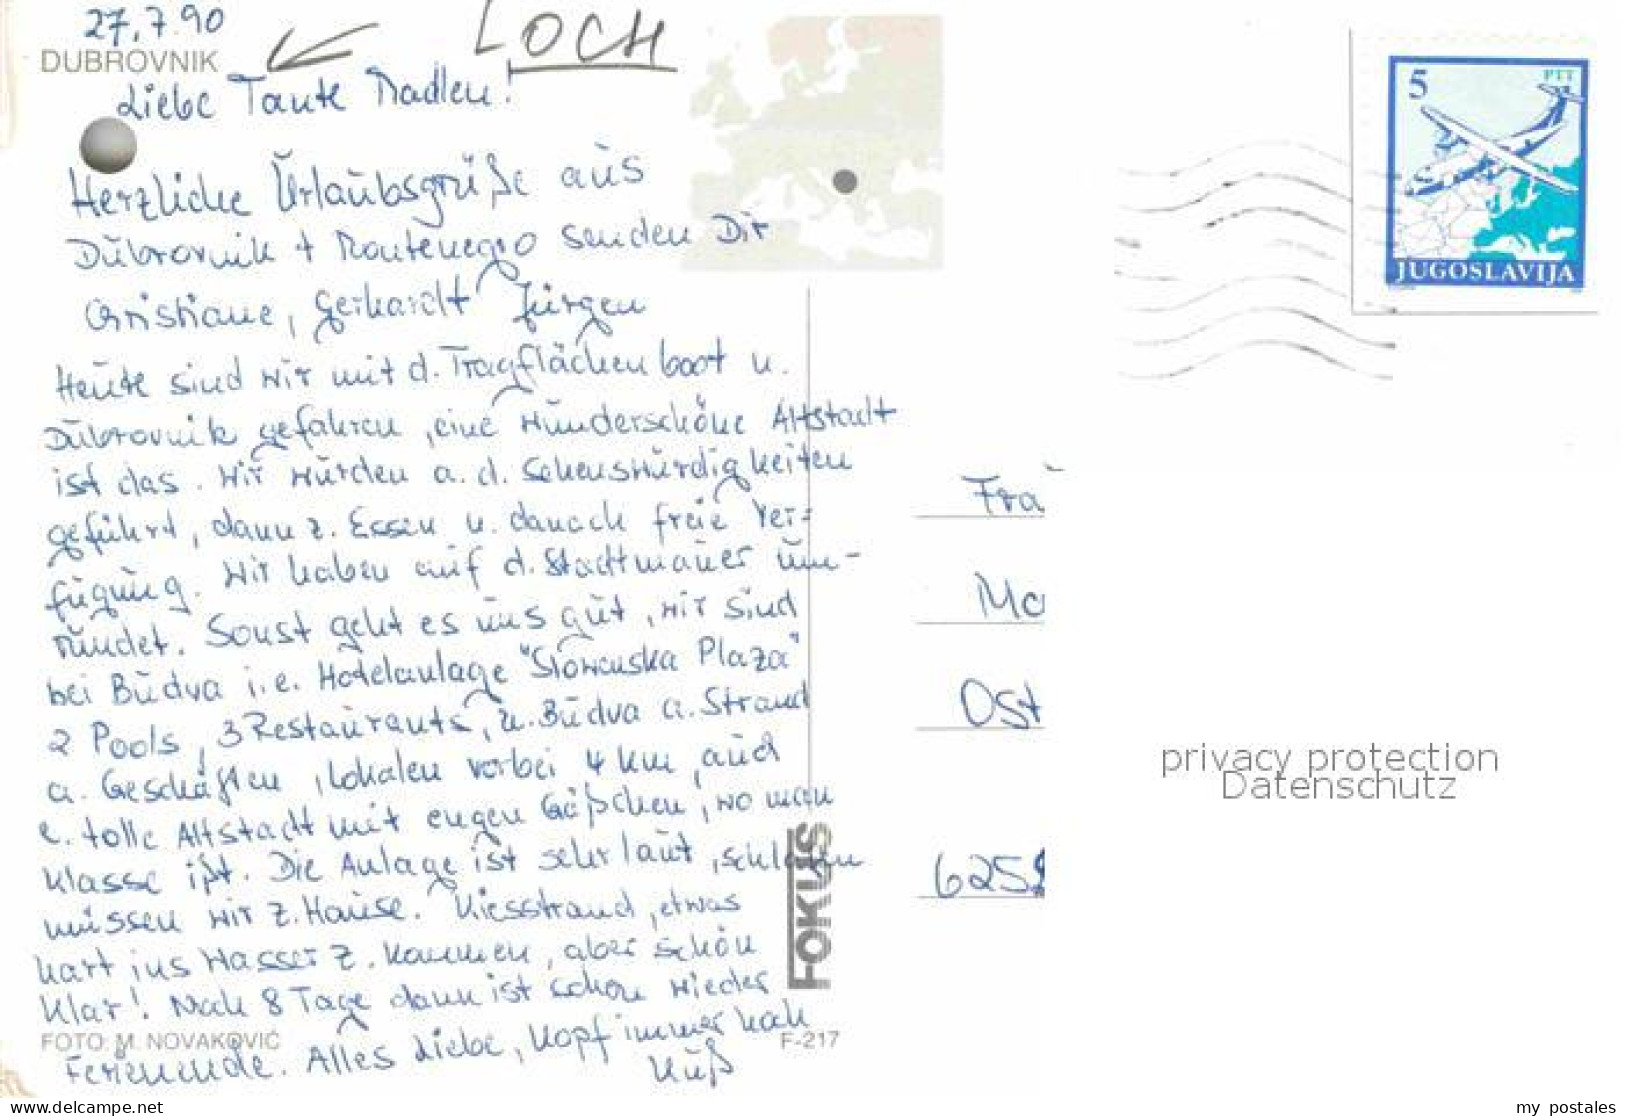 27.7.90
DUBROVNIK
LOCH
Liebe Tante Madlen!
Herzliche Urlaubsgrüße aus
Dubrovnik + Montenegro senden Dir
Christiane, Gerhardt Jürgen
Heute sind wir mit d. Tragflächenboot n.
Dubrovnik gefahren, eine wunderschöne Altstadt
ist das. Wir wurden a. d. Sehenswürdigkeiten
geführt, dann z. Essen u. danach freie Ver-
fügung. Wir haben auf d. Stadtmauer um-
rundet. Sonst geht es uns gut, wir sind
bei Budva i. e. Hotelanlage "Slowenska Plaza"
2 Pools, 3 Restaurants, n. Budva a. Strand
a. Geschäften, Lokalen vorbei 4 km, auch
e. tolle Altstadt mit engen Gäßchen, wo man
klasse ißt. Die Anlage ist sehr laut, schlafen
müssen wir z. Hause. Kiesstrand, etwas
hart ins Wasser z. kommen, aber schön
klar! Nach 8 Tage dann ist schon wieder
Ferienende. Alles Liebe, Kopf immer hoch
Kuß
FOTO: M. NOVAKOVIĆ
F-217
FOKUS
5
PTT
JUGOSLAVIJA
Frau
Ma
Ost
625
privacy protection
Datenschutz
delcampe.net
my_postales